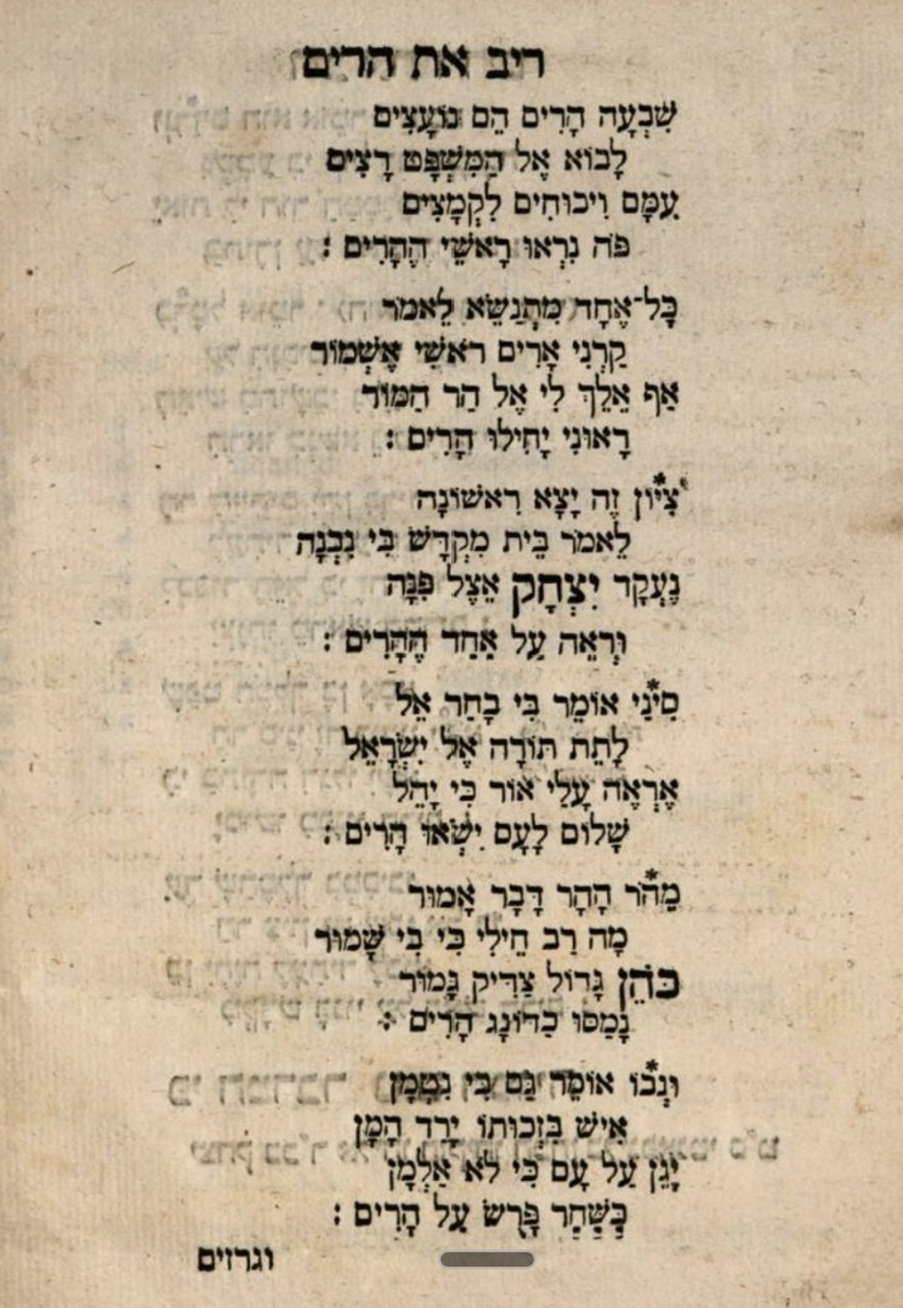 ריב את הרים
שִׁבְעָה הָרִים הֵם נוֹעָצִים
לָבוֹא אֶל הַמִּשְׁפָּט רָצִים
עִמָּם וִיכוּחִים לִקְמָצִים
פֹּה נִרְאוּ רָאשֵׁי הֶהָרִים :
כָּל־אֶחָד מִתְנַשֵּׂא לֵאמֹר
קַרְנִי אָרִים רֹאשִׁי אֶשְׁמוֹר
אַף אֵלֵךְ לִי אֶל הַר הַמּוֹר
רָאוּנִי יָחִילוּ הָרִים :
צִיּוֹן זֶה יָצָא רִאשׁוֹנָה
לֵאמֹר בֵּית מִקְדָּשׁ בִּי נִבְנָה
נֶעְקָד יִצְחָק אֵצֶל פִּנָּה
וּרְאֵה עַל אַחַד הֶהָרִים :
סִינַי אוֹמֵר בִּי בָחַר אֵל
לָתֵת תּוֹרָה אֶל יִשְׂרָאֵל
אֶרְאֶה עָלַי אוֹר כִּי יָהֵל
שָׁלוֹם לָעָם יִשְׂאוּ הָרִים :
מֵהֹר הָהָר דָּבָר אָמוּר
מָה רַב חֵילִי כִּי בִי שָׁמוּר
כֹּהֵן גָּדוֹל צַדִּיק גָּמוּר
נָמַסּוּ כַדּוֹנָג הָרִים :
וּנְבוֹ אוֹמֵר גַּם בִּי נִטְמָן
אִישׁ בִּזְכוּתוֹ יָרַד הַמָּן
יָגֵן עַל עָם כִּי לֹא אַלְמָן
כְּשַׁחַר פָּרֻשׂ עַל הָרִים :
וגרזים